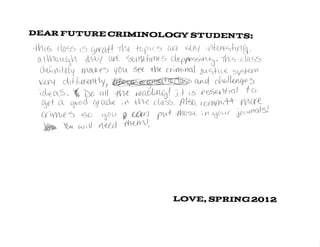 DEAR FUTURE CRIMINOLOGY STUDENTS:
this class is great! the topics are very interesting.
although they are sometimes depressing. this class
definitely makes you see the criminal justice system
very differently, and challenges
ideas. Do all the reading! it is essential to
get a good grade in the class. Also, committ more
crimes so you can put those in your journals!
You will need them!
LOVE, SPRING 2012